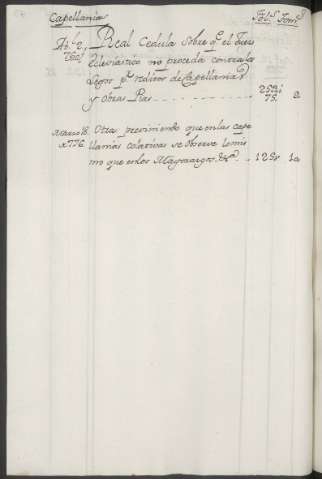 Capellania Fol.s Tom.s
Ab.l 2, Real Cedula sobre q.e el Juez
eclesiástico no proceda contra los
Legos p.r reditos de Capellanias
y Obras Pias 75. 2
Marzo 18. Otra, previniendo que en las cape
1776 llanias colativas se observe lo mis
mo que en los Mayorazgos &a. 125 1o